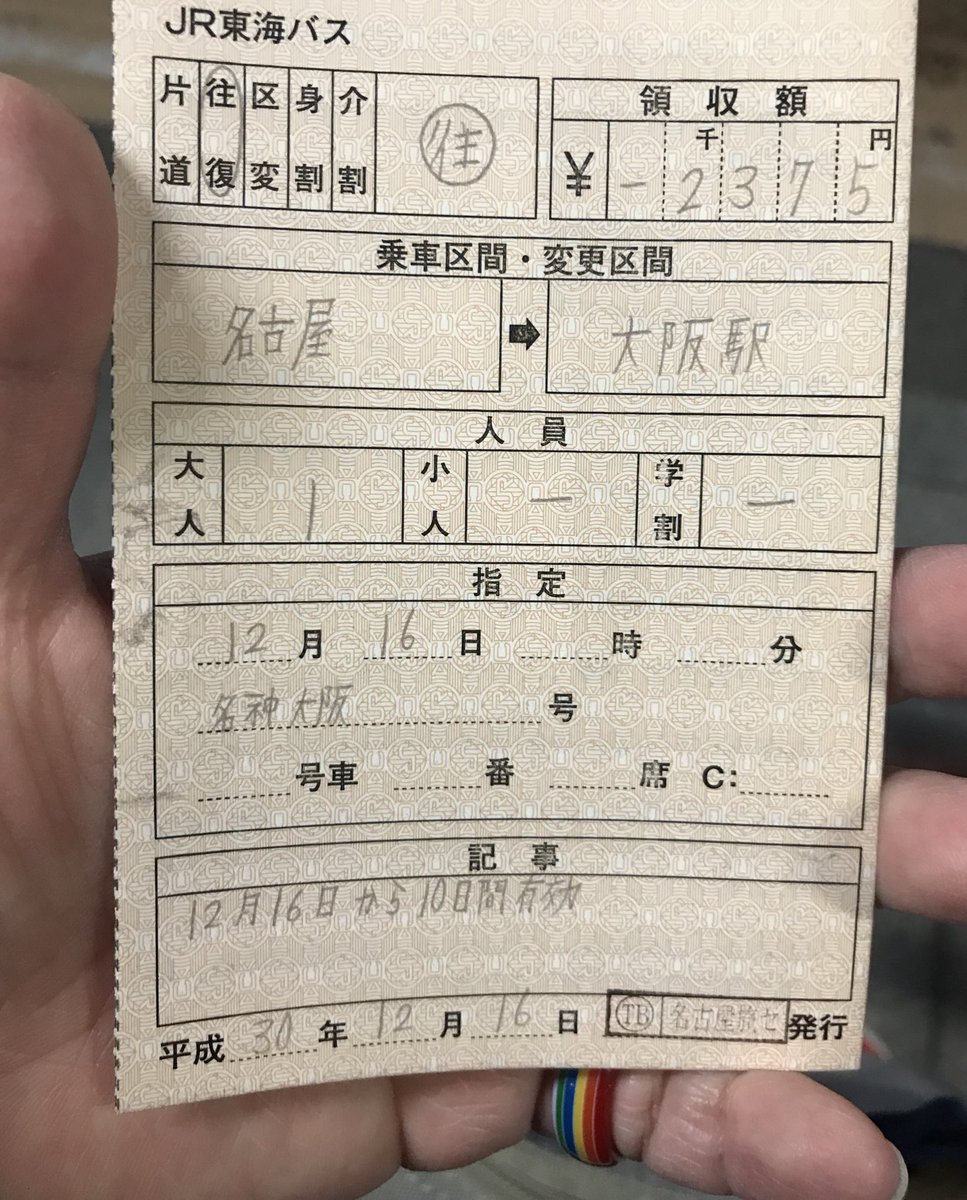 JR東海バス
片道 往復 区変 身割 介割 ㊟往
領収額
千 円
¥ - 2 3 7 5
乗車区間・変更区間
名古屋 ➡ 大阪駅
人員
大人 1 小人 ー 学割 ー
指定
12月 16日 時 分
名神大阪 号
号車 番 席 C:
記事
12月16日から10日間有効
平成30年12月16日 TB 名古屋旅セ 発行